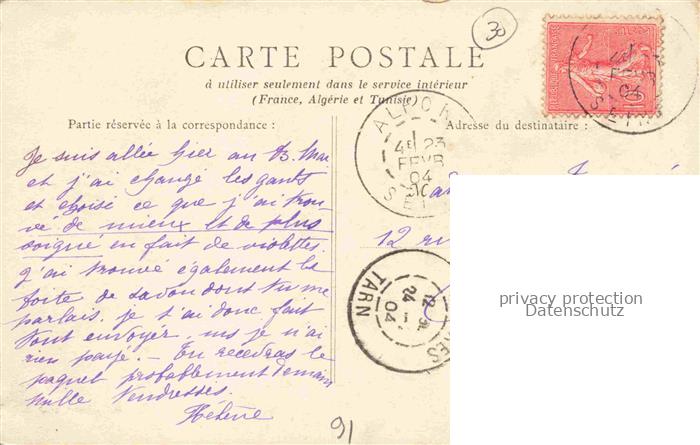 30
CARTE POSTALE
à utiliser seulement dans le service intérieur
(France, Algérie et Tunisie)
Partie réservée à la correspondance :
Adresse du destinataire :
Je suis allée hier au B. Mar
et j'ai changé les gants
et choisi ce que j'ai trou-
vé de mieux et de plus
soigné en fait de violettes.
J'ai trouvé également la
boite de savon dont tu me
parlais. Je t'ai donc fait
tout envoyer, ms je n'ai
rien payé. - Tu recevras le
paquet probablement demain
Mille tendresses.
Hélène
91
4E 23
FEVR
04
SEINE
12
24
04
TARN
12 ru
privacy protection
Datenschutz
10